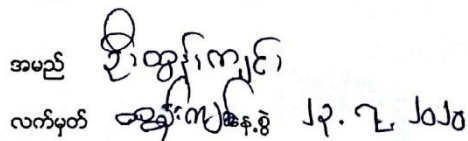 အမည် ဦးထွန်းကျင်
လက်မှတ် ထွန်းကျင် နေ့စွဲ ၂၃.၇.၂၀၂၀